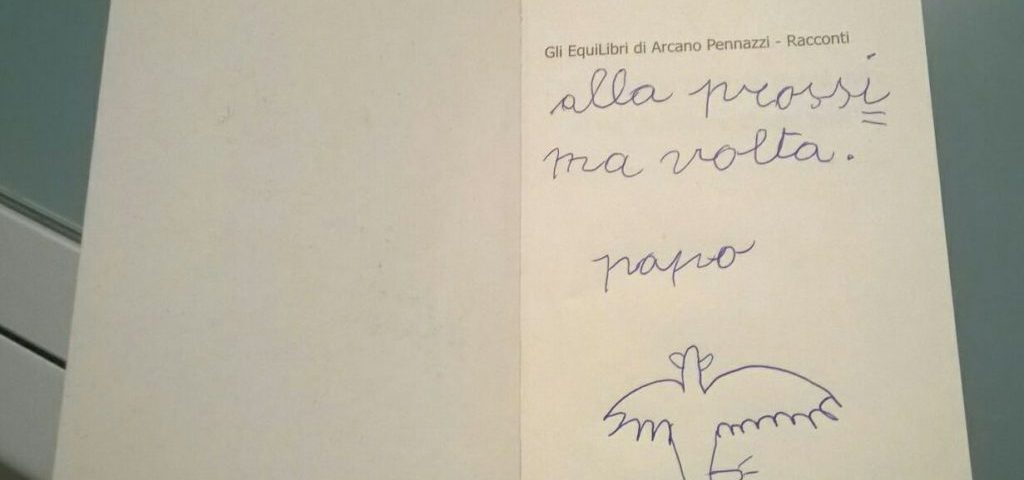 Gli EquiLibri di Arcano Pennazzi - Racconti
alla prossi=
ma volta.
papo